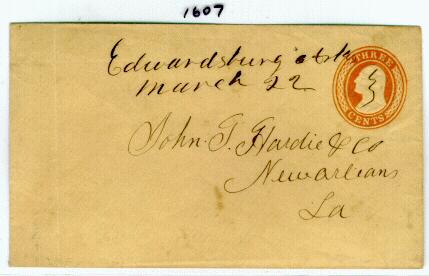 1607
Edwardsburg Ark
March 22
THREE
CENTS
John. T. Hardie & Co
New Orleans
La